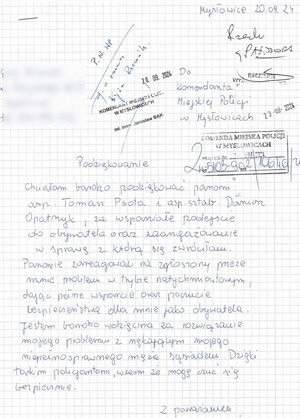 Mysłowice 20.09.24
P. NP
20. 09. 2024
KOMENDANT MIEJSKI POLICJI
W MYSŁOWICACH
Do
Komendanta
Miejskiej Policji
w Mysłowicach
KOMENDA MIEJSKA POLICJI
W MYSŁOWICACH
Podziękowanie
Chciałam bardzo podziękować panom
asp. Tomasz Psota i asp. sztab. Dariusz
za wspaniałe podejście
do obywatela oraz zaangażowanie
w sprawę z którą się zwróciłam.
Panowie zareagowali na zgłoszony przeze
mnie problem w trybie natychmiastowym,
dając pełne wsparcie oraz poczucie
bezpieczeństwa dla mnie jako obywatela.
Jestem bardzo wdzięczna za rozwiązanie
mojego problemu z nękającym mojego
niepełnosprawnego męża sąsiadem. Dzięki
takim policjantom, wiem że mogę czuć się
bezpiecznie.
Z poważaniem